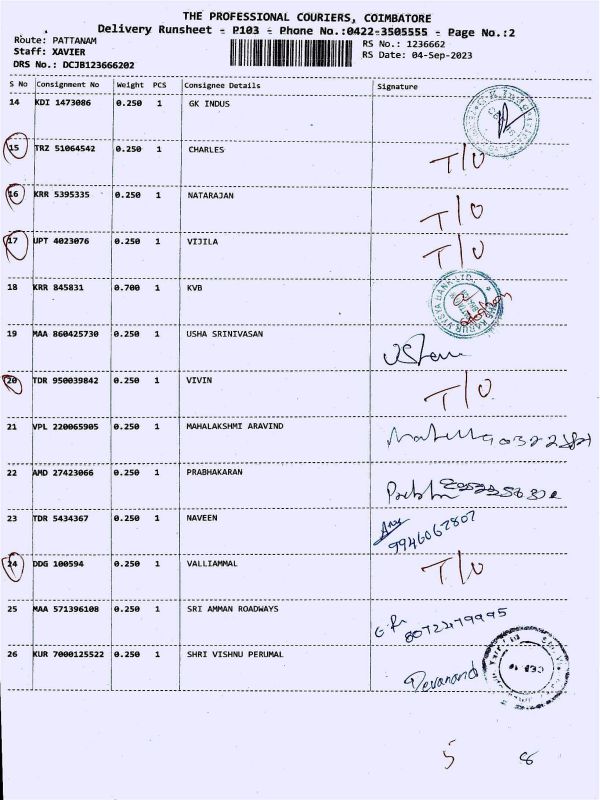 THE PROFESSIONAL COURIERS, COIMBATORE
Delivery Runsheet - P103 - Phone No.:0422-3505555 - Page No.:2
Route: PATTANAM
RS No.: 1236662
Staff: XAVIER
RS Date: 04-Sep-2023
DRS No.: DCJB123666202
S No Consignment No Weight PCS Consignee Details Signature
14 KDI 1473086 0.250 1 GK INDUS
15 TRZ 51064542 0.250 1 CHARLES T/O
16 KRR 5395335 0.250 1 NATARAJAN T/O
17 UPT 4023076 0.250 1 VIJILA T/O
18 KRR 845831 0.700 1 KVB
19 MAA 860425730 0.250 1 USHA SRINIVASAN
20 TDR 950039842 0.250 1 VIVIN T/O
21 VPL 220065905 0.250 1 MAHALAKSHMI ARAVIND
22 AMD 27423066 0.250 1 PRABHAKARAN
23 TDR 5434367 0.250 1 NAVEEN 9946062807
24 DDG 100594 0.250 1 VALLIAMMAL T/O
25 MAA 571396108 0.250 1 SRI AMMAN ROADWAYS 8072479995
26 KUR 7000125522 0.250 1 SHRI VISHNU PERUMAL Devanand
5 8